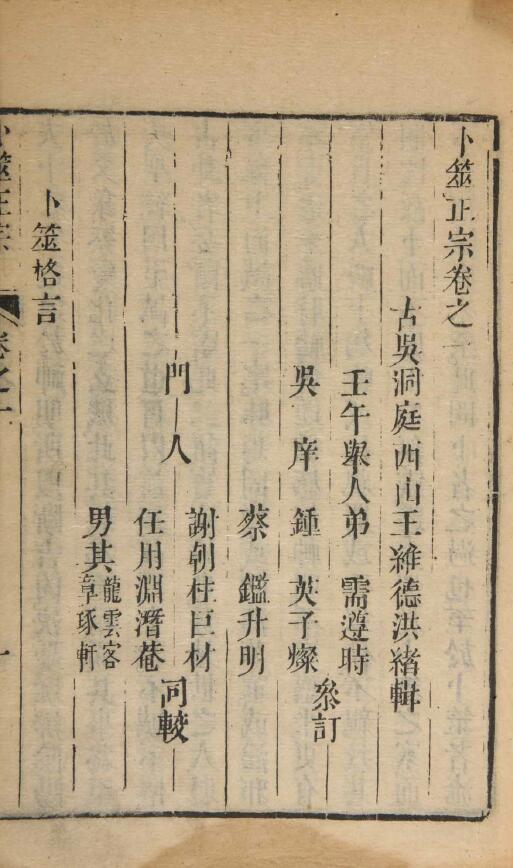 卜筮正宗卷之一
古吳洞庭西山王維德洪緒輯
壬午舉人弟 需遵時
吳庠 鍾英子燦 叅訂
蔡鑑升明
門人 謝朝柱巨材
任用淵潛菴 同較
男其龍雲客
章琢軒
卜筮格言
卜筮正宗 卷之一 一